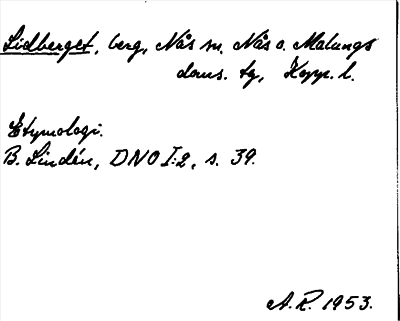 Lidberget, berg, Nås sn. Nås o. Malungs
doms. tg, Kopp. l.
Etymologi.
B. Lindén, DNO I:2, s. 39.
A. R. 1953.